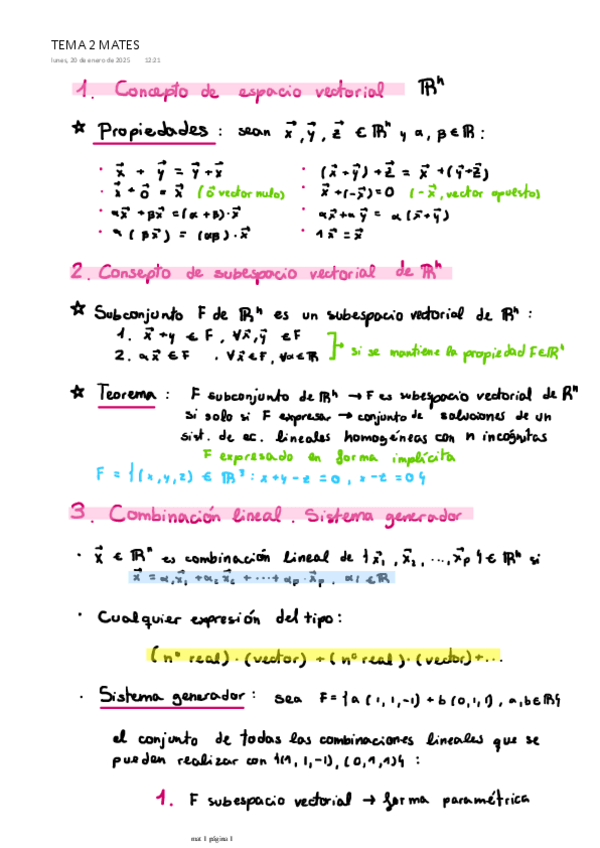 TEMA 2 MATES
lunes, 20 de enero de 2025 12:21
1. Concepto de espacio vectorial ℝⁿ
☆ Propiedades : sean x⃗, y⃗, z⃗ ∈ ℝⁿ y α, β ∈ ℝ :
· x⃗ + y⃗ = y⃗ + x⃗ · (x⃗+y⃗)+z⃗ = x⃗+(y⃗+z⃗)
· x⃗ + o⃗ = x⃗ (o⃗ vector nulo) · x⃗+(-x⃗)=0 (-x⃗, vector opuesto)
· αx⃗ + βx⃗ = (α+β)·x⃗ · αx⃗+αy⃗ = α(x⃗+y⃗)
· α(βx⃗) = (αβ)·x⃗ · 1x⃗ = x⃗
2. Consepto de subespacio vectorial de ℝⁿ
☆ Subconjunto F de ℝⁿ es un subespacio vectorial de ℝⁿ :
1. x⃗+y ∈ F, ∀x⃗,y⃗ ∈F
2. αx⃗ ∈ F , ∀x⃗∈F, ∀α∈ℝ
si se mantiene la propiedad F∈ℝⁿ
☆ Teorema : F subconjunto de ℝⁿ → F es subespacio vectorial de ℝⁿ
si solo si F expresar → conjunto de soluciones de un
sist. de ec. lineales homogéneas con n incógnitas
F expresado en forma implícita
F = {(x,y,z) ∈ ℝ³ : x+y-z=0, x-z=0}
3. Combinación lineal. Sistema generador
· x⃗ ∈ ℝⁿ es combinación lineal de {x⃗₁, x⃗₂, ..., x⃗p} ∈ ℝⁿ si
x⃗ = α₁x⃗₁ + α₂x⃗₂ + ···+ αp·x⃗p, αi ∈ ℝ
· Cualquier expresión del tipo:
(nº real)·(vector) + (nº real)·(vector)+...
· Sistema generador : sea F={a(1,1,-1)+b(0,1,1), a,b∈ℝ}
el conjunto de todas las combinaciones lineales que se
pueden realizar con {(1,1,-1),(0,1,1)} :
1. F subespacio vectorial → forma paramétrica
mat 1 página 1